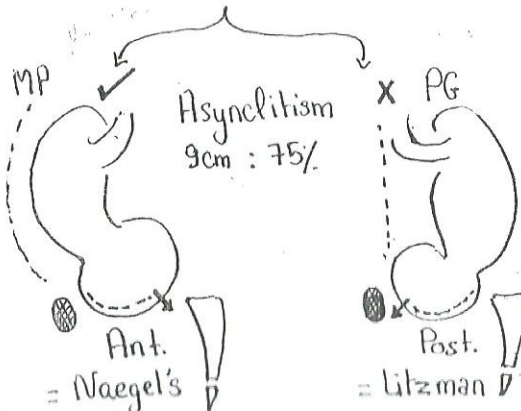 MP ✓ X PG
Asynclitism
9cm : 75%
Ant.
= Naegel's
Post.
= Litzman